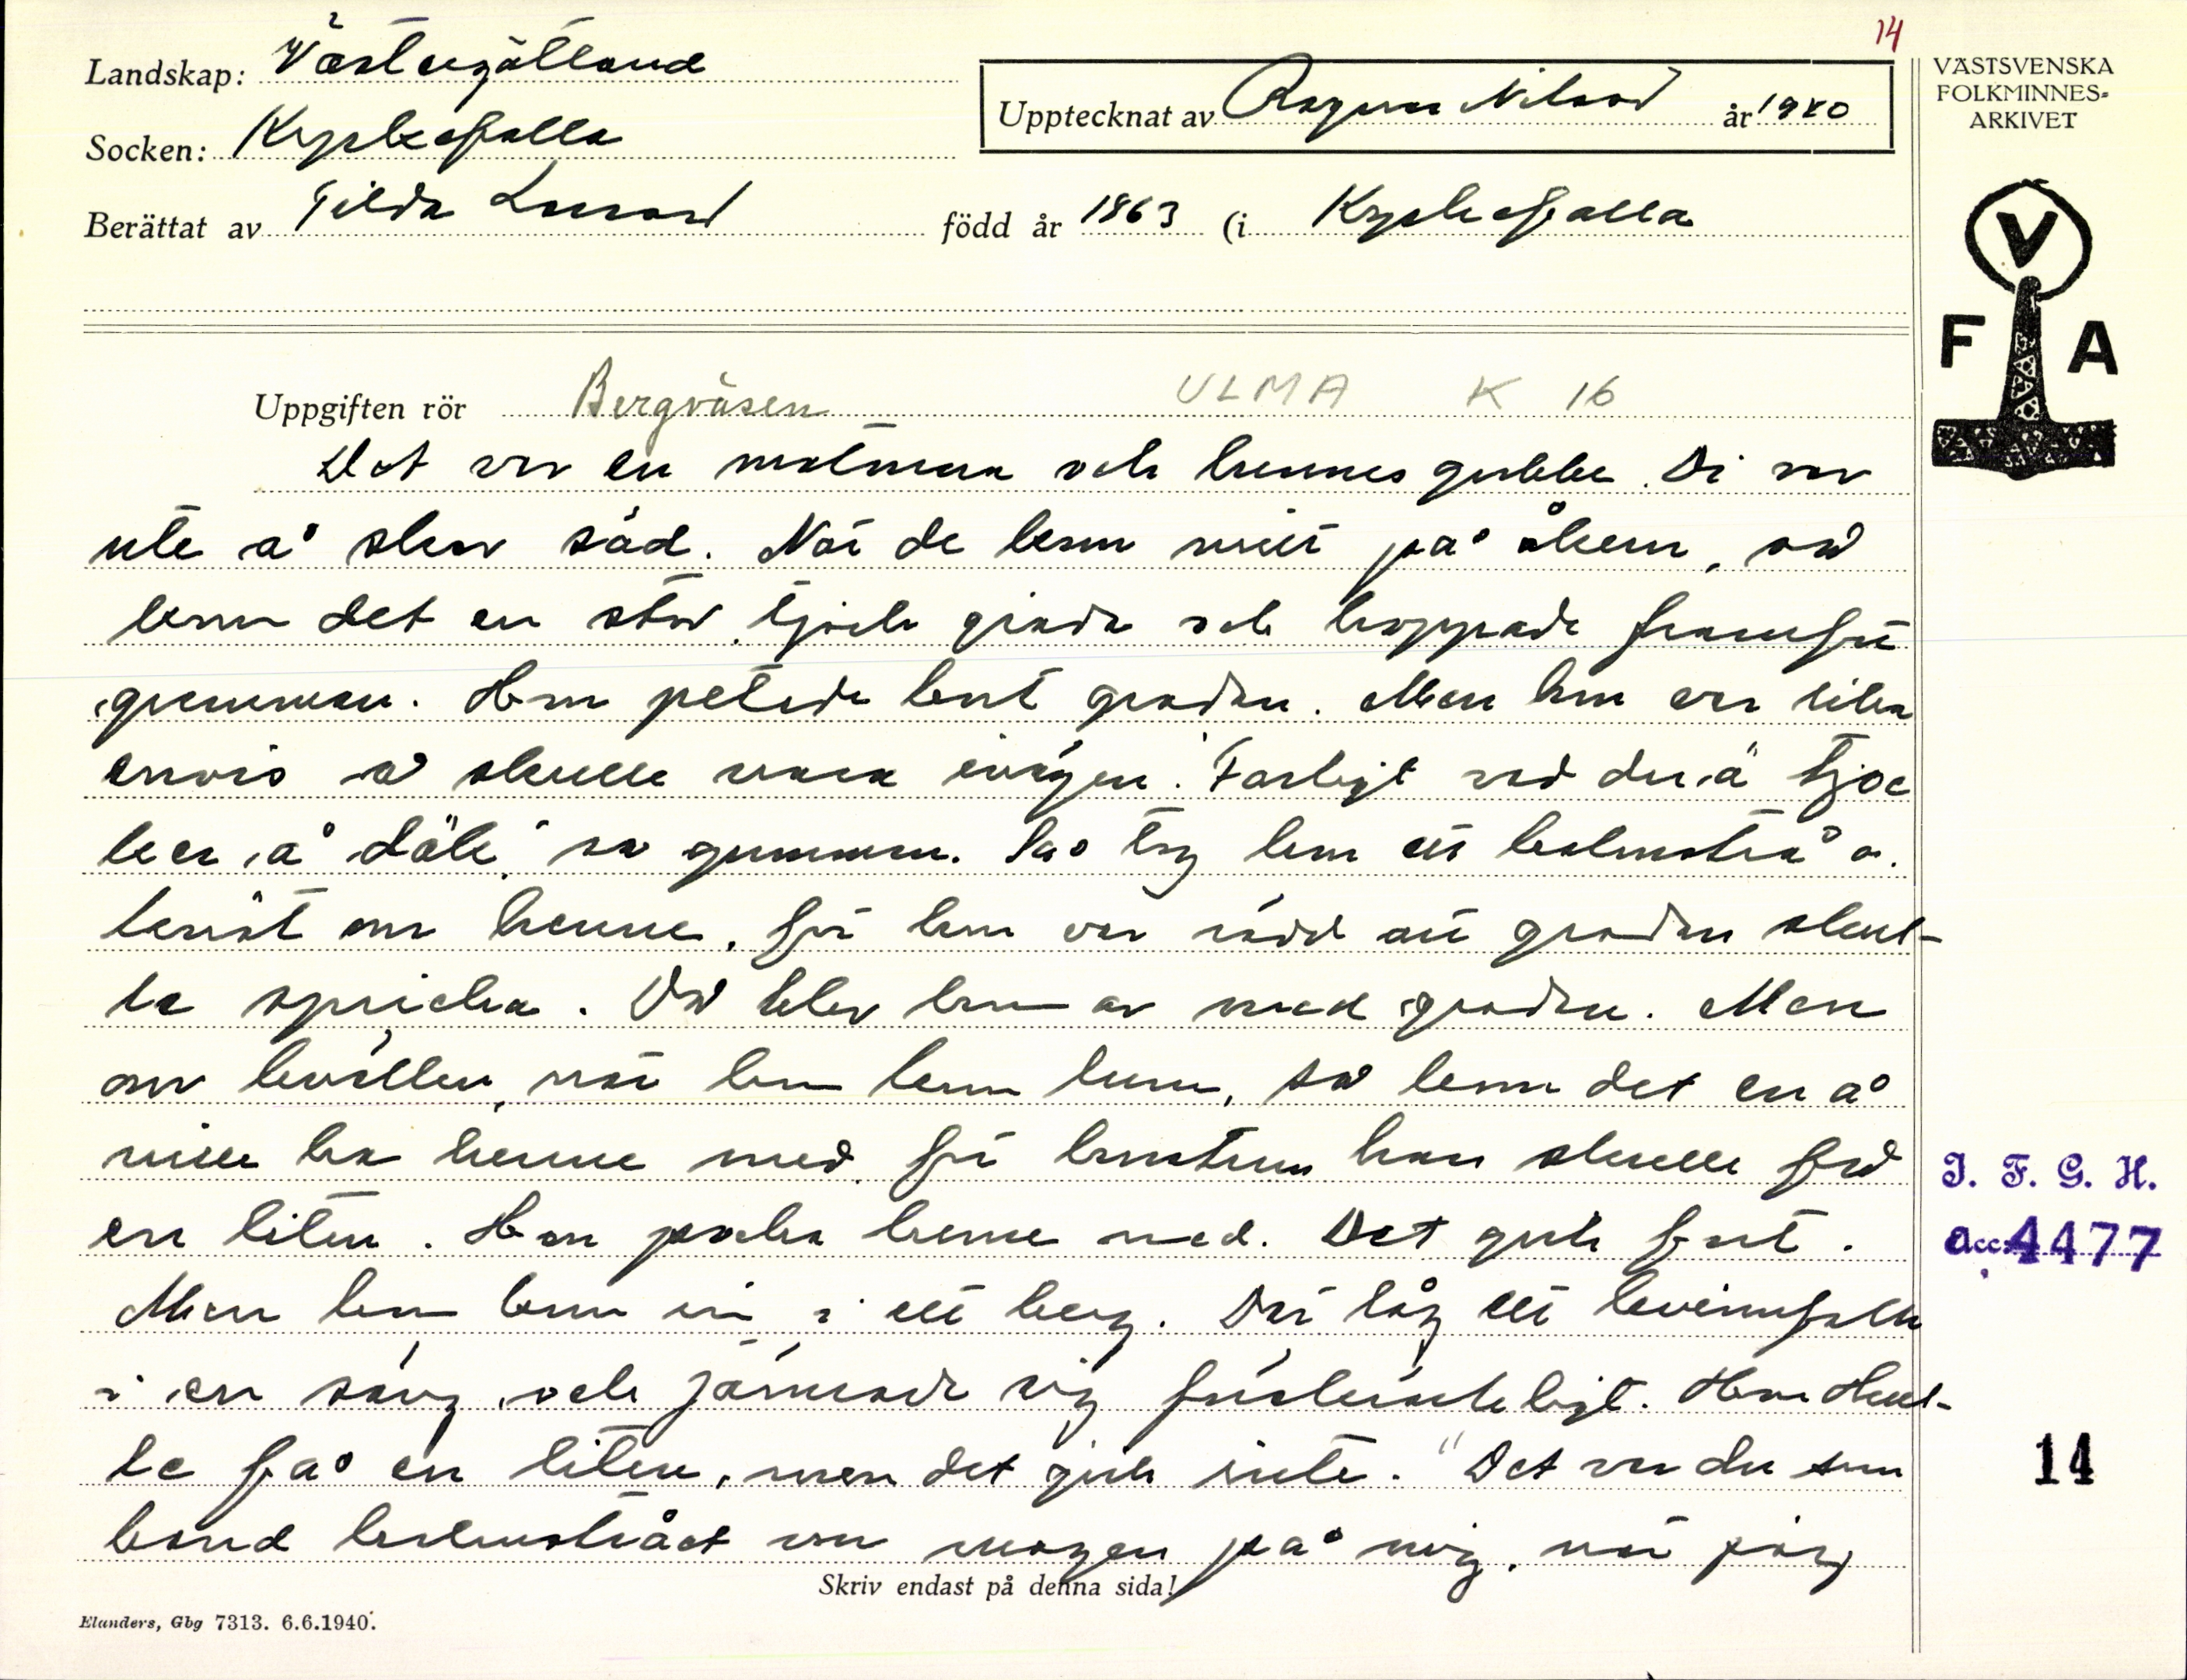 14
Landskap: Västergötland
Socken: Kyrkefalla
Upptecknat av Ragnar Nilsson år 1940
Berättat av Tilda Larsson född år 1863 (i Kyrkefalla
VÄSTSVENSKA
FOLKMINNES-
ARKIVET
V
F A
Uppgiften rör Bergväsen ULMA K 16
Det var en och hennes gubbe. Di var
ute å skar säd. När de kom mitt på åkern, så
kom det en stor tjock groda och hoppade framför
gumman. Hon petade bort grodan. Men hon var lika
envis å skulle vara ivägen. "Farligt vad du ä tjoc
ker å däli" sa gumman. Så tog hon ett halmstrå å
knöt om henne, för hon var rädd att grodan skul-
le spricka. Då blev hon av med grodan. Men
om kvällen, när hon kom hem, så kom det en å
ville ha henne med för hustrun han skulle få
en liten. Hon packa henne med. Det gick fort.
Men hon kom in i ett berg. Där låg ett kvinnfolk
i en säng och jämrade sig förskräckligt. Hon skul-
le få en liten, men det gick inte. "Det var du som
band halmstrået om magen på mig, när jag
Skriv endast på denna sida!
Elanders, Gbg 7313. 6.6.1940.
I. F. G. H.
Acc: 4477
14